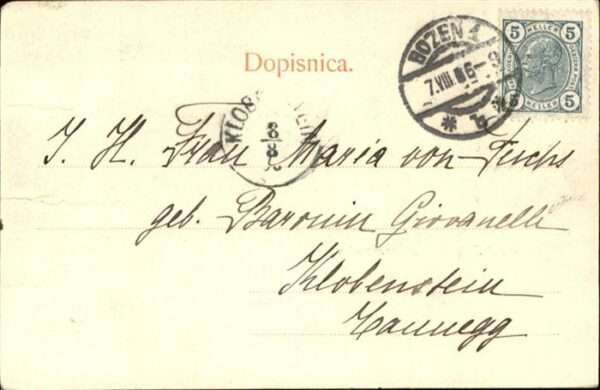 Dopisnica.
BOZEN 1
7.VIII.06
5 HELLER 5
5 HELLER 5
KLOBENSTEIN
8 8
I. H. Frau Maria von Fuchs
geb. Baronin Giovanelli
Klobenstein